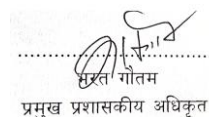 भरत गौतम
प्रमुख प्रशासकीय अधिकृत